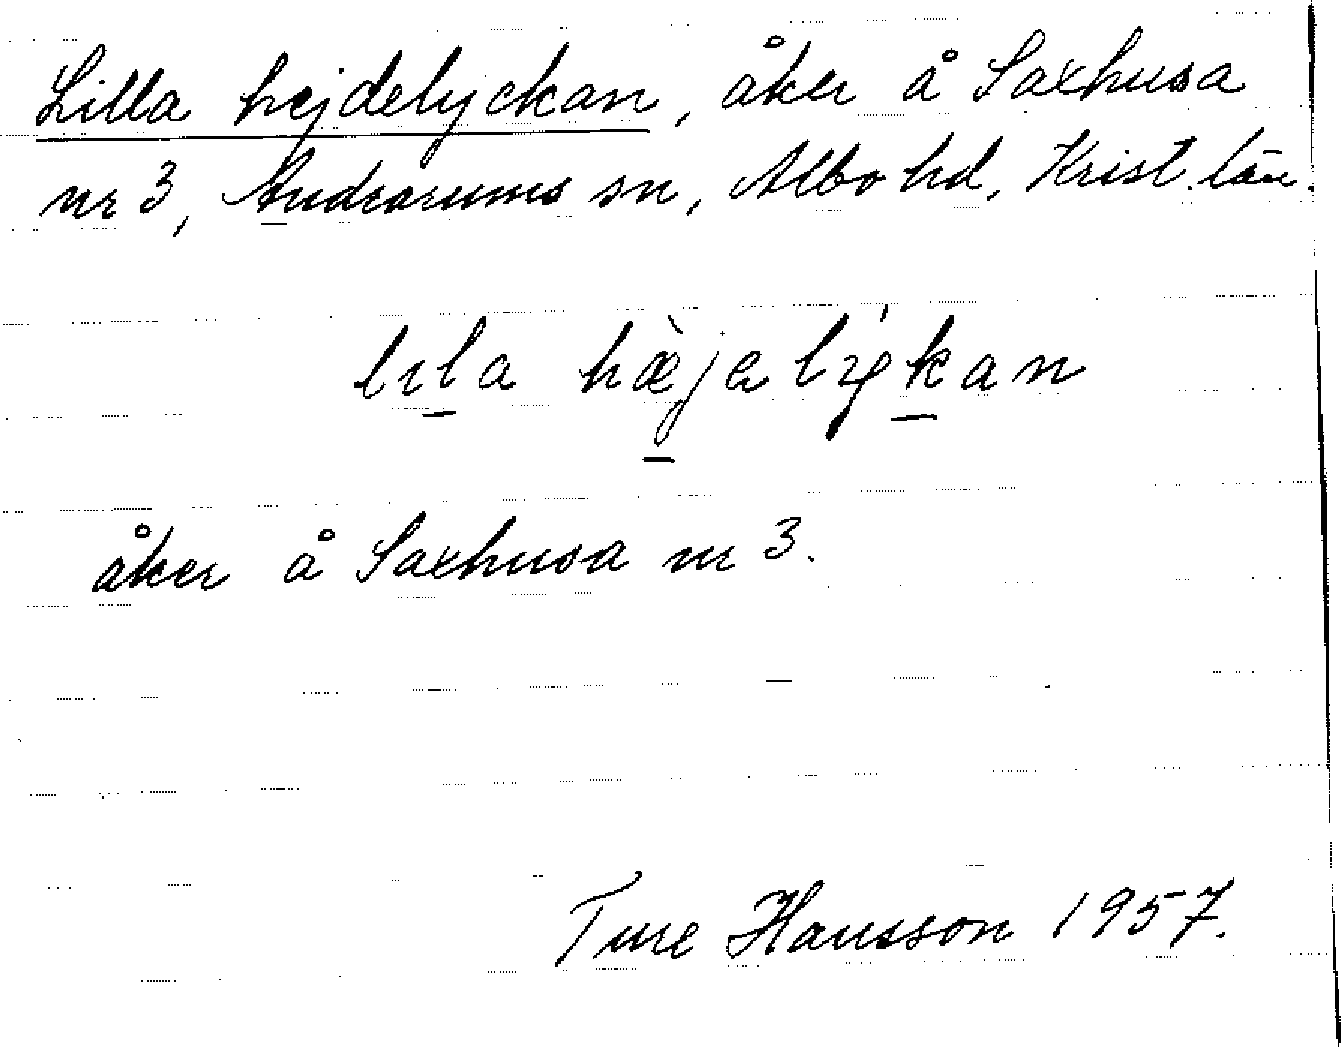 Lilla hejdelyckan, åker å Saxhusa
nr 3, Andrarums sn, Albo hd, Krist. län.
lıla hæ̀jalýkan
åker å Saxhusa nr 3.
Ture Hansson 1957.